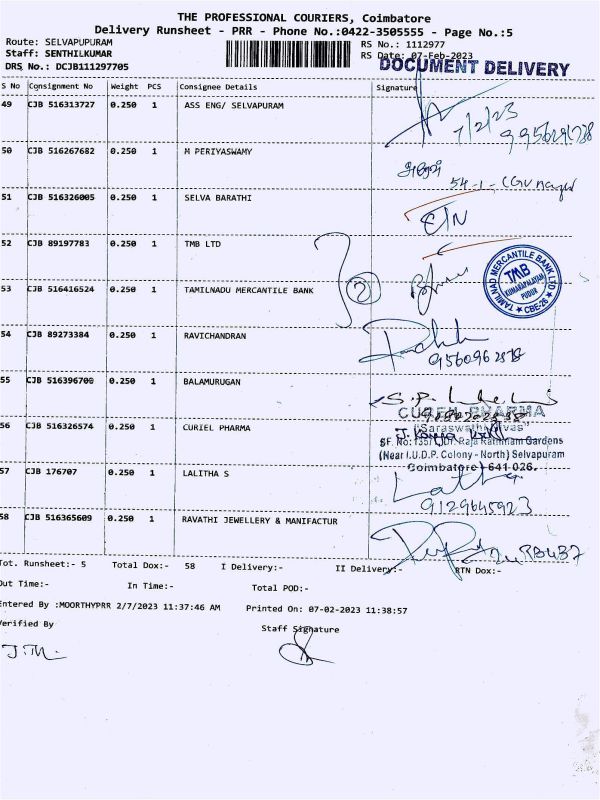 THE PROFESSIONAL COURIERS, Coimbatore
Delivery Runsheet - PRR - Phone No.:0422-3505555 - Page No.:5
Route: SELVAPUPURAM
RS No.: 1112977
Staff: SENTHILKUMAR
RS Date: 07-Feb-2023
DRS No.: DCJB111297705
DOCUMENT DELIVERY
S No Consignment No Weight PCS Consignee Details Signature
49 CJB 516313727 0.250 1 ASS ENG/ SELVAPURAM
7/2/23
50 CJB 516267682 0.250 1 M PERIYASWAMY
51 CJB 516326005 0.250 1 SELVA BARATHI
52 CJB 89197783 0.250 1 TMB LTD
TAMILNAD MERCANTILE BANK LTD
TMB
KUMARAPALAYAM
PUDUR
CBE-26
53 CJB 516416524 0.250 1 TAMILNADU MERCANTILE BANK
2
54 CJB 89273384 0.250 1 RAVICHANDRAN
55 CJB 516396700 0.250 1 BALAMURUGAN
56 CJB 516326574 0.250 1 CURIEL PHARMA
PHARMA
(Near I.U.D.P. Colony - North) Selvapuram
Coimbatore - 641 026.
57 CJB 176707 0.250 1 LALITHA S
Latha
9129645923
58 CJB 516365609 0.250 1 RAVATHI JEWELLERY & MANIFACTUR
Tot. Runsheet:- 5 Total Dox:- 58 I Delivery:- II Delivery:- RTN Dox:-
Out Time:- In Time:- Total POD:-
Entered By :MOORTHYPRR 2/7/2023 11:37:46 AM Printed On: 07-02-2023 11:38:57
Verified By Staff Signature